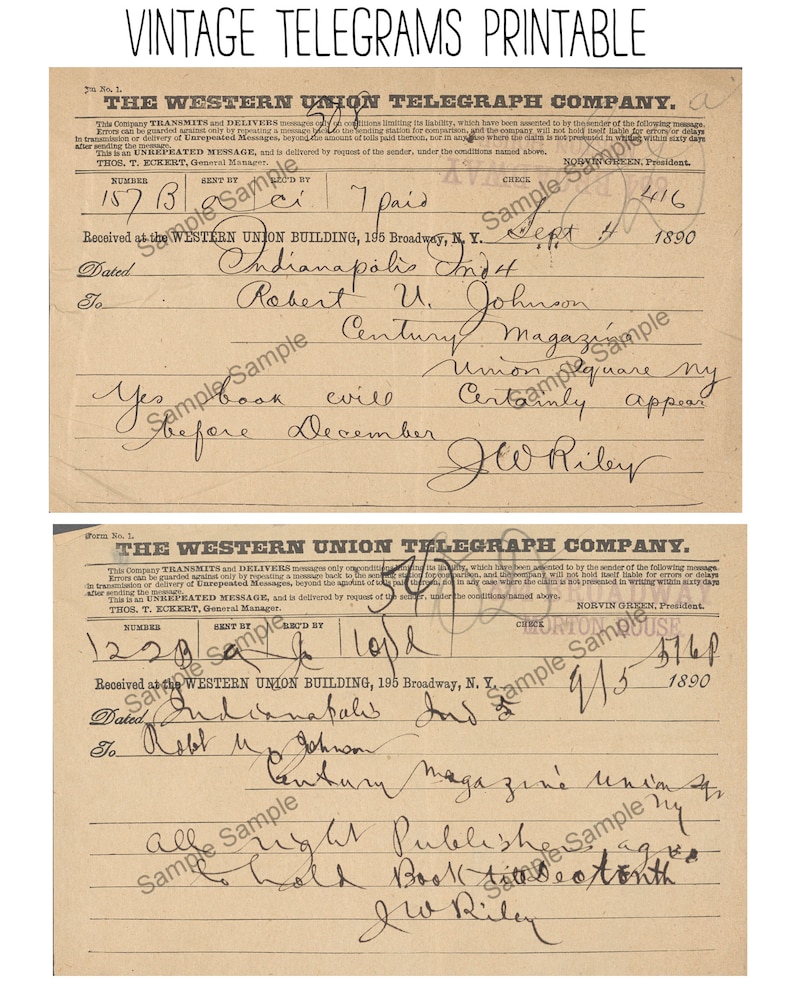 VINTAGE TELEGRAMS PRINTABLE
Form No. 1.
THE WESTERN UNION TELEGRAPH COMPANY.
a
508
This Company TRANSMITS and DELIVERS messages only on conditions limiting its liability, which have been assented to by the sender of the following message.
Errors can be guarded against only by repeating a message back to the sending station for comparison, and the company will not hold itself liable for errors or delays
in transmission or delivery of Unrepeated Messages, beyond the amount of tolls paid thereon, nor in any case where the claim is not presented in writing within sixty days
after sending the message.
This is an UNREPEATED MESSAGE, and is delivered by request of the sender, under the conditions named above.
THOS. T. ECKERT, General Manager. NORVIN GREEN, President.
NUMBER SENT BY REC'D BY CHECK
157 B a ci 7 paid 416
Received at the WESTERN UNION BUILDING, 195 Broadway, N. Y. Sept 4 1890
Dated Indianapolis Ind 4
To Robert U. Johnson
Century Magazine
Union Square Ny
Yes book will Certainly appear
before December
JW Riley
Sample Sample
Sample Sample
Sample Sample
Sample Sample
Form No. 1.
THE WESTERN UNION TELEGRAPH COMPANY.
This Company TRANSMITS and DELIVERS messages only on conditions limiting its liability, which have been assented to by the sender of the following message.
Errors can be guarded against only by repeating a message back to the sending station for comparison, and the company will not hold itself liable for errors or delays
in transmission or delivery of Unrepeated Messages, beyond the amount of tolls paid thereon, nor in any case where the claim is not presented in writing within sixty days
after sending the message.
This is an UNREPEATED MESSAGE, and is delivered by request of the sender, under the conditions named above.
THOS. T. ECKERT, General Manager. NORVIN GREEN, President.
MORTON HOUSE
NUMBER SENT BY REC'D BY CHECK
122 B a Jc 10 pd 516P
Received at the WESTERN UNION BUILDING, 195 Broadway, N. Y. 9/5 1890
Dated Indianapolis Ind
To Robt U. Johnson
Century Magazine Union Sqr
Ny
All right Publishers agree
to hold Book till Dec tenth
JW Riley
Sample Sample
Sample Sample
Sample Sample
Sample Sample